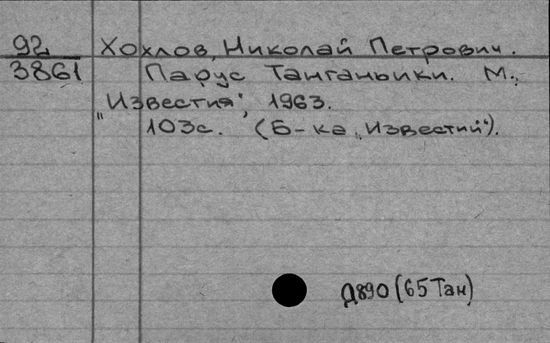 92 Хохлов, Николай Петрович.
3861 Парус Танганьики. М.,
„Известия", 1963.
103с. (Б-ка „Известий").
Д890 (65Тан)